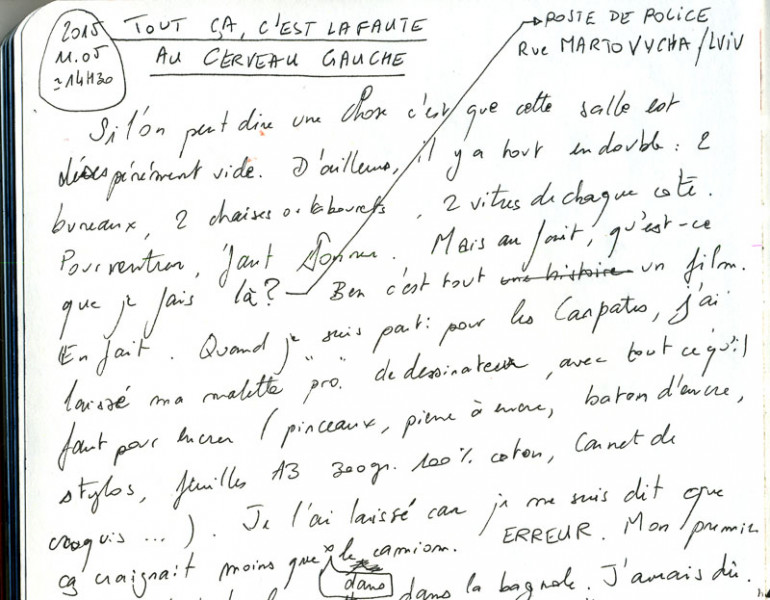 2015
11.05
≃14H30
TOUT ÇA, C'EST LA FAUTE
AU CERVEAU GAUCHE
POSTE DE POLICE
Rue MARTOVYCHA / LVIV
Si l'on peut dire une chose c'est que cette salle est
désespérément vide. D'ailleurs, il y a tout en double : 2
bureaux, 2 chaises ou tabourets, 2 vitres de chaque coté.
Pour rentrer, faut sonner. Mais au fait, qu'est-ce
que je fais là ? Ben c'est tout une histoire un film.
En fait. Quand je suis parti pour les Carpates, j'ai
laissé ma malette "pro" de dessinateur, avec tout ce qu'il
faut pour encrer (pinceaux, pierre à encre, baton d'encre,
stylos, feuilles A3 300gr. 100% coton, Carnet de
croquis ... ). Je l'ai laissé car je me suis dit que
ça craignait moins que le camion. ERREUR. Mon premier
dans dans la bagnole. J'aurais dû.